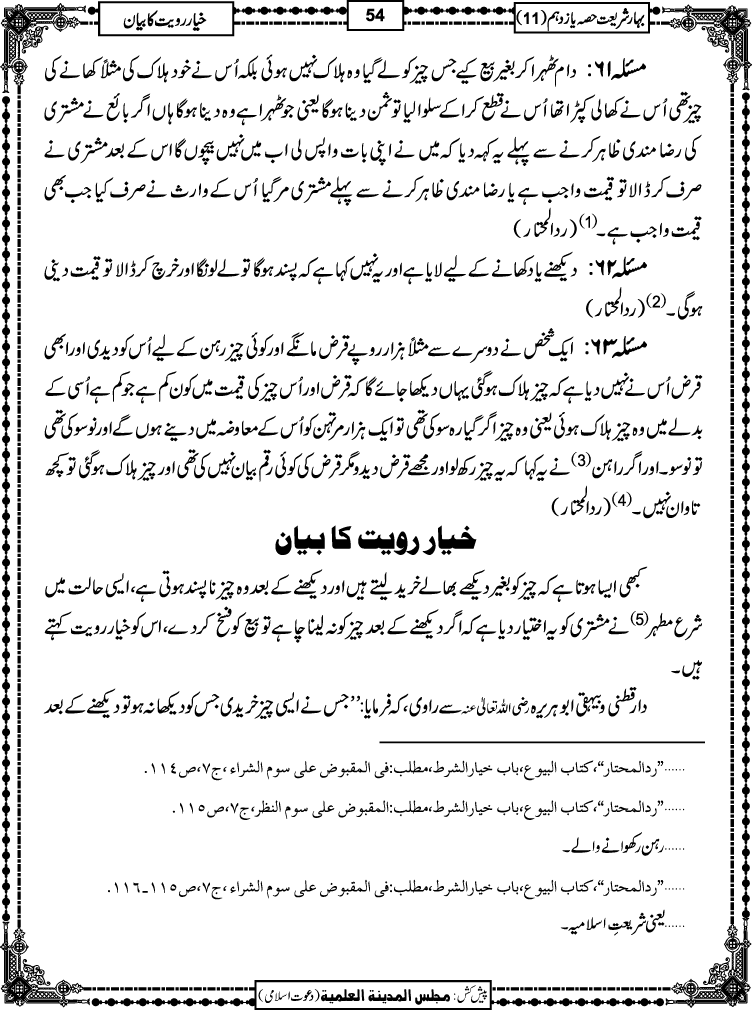 بہارِ شریعت حصہ یازدہم (11)
54
خیار رویت کا بیان
مسئلہ ۶۱: دام ٹھہرا کر بغیر بیع کیے جس چیز کو لے گیا وہ ہلاک نہیں ہوئی بلکہ اُس نے خود ہلاک کی مثلاً کھانے کی
چیز تھی اُس نے کھالی کپڑا تھا اُس نے قطع کرا کے سلوا لیا تو ثمن دینا ہوگا یعنی جو ٹھہرا ہے وہ دینا ہوگا ہاں اگر بائع نے مشتری
کی رضا مندی ظاہر کرنے سے پہلے یہ کہہ دیا کہ میں نے اپنی بات واپس لی اب میں نہیں بیچوں گا اس کے بعد مشتری نے
صرف کر ڈالا تو قیمت واجب ہے یا رضا مندی ظاہر کرنے سے پہلے مشتری مر گیا اُس کے وارث نے صرف کیا جب بھی
قیمت واجب ہے۔(1) (ردالمحتار)
مسئلہ ۶۲: دیکھنے یا دکھانے کے لیے لایا ہے اور یہ نہیں کہا ہے کہ پسند ہوگا تو لے لونگا اور خرچ کر ڈالا تو قیمت دینی
ہوگی۔(2) (ردالمحتار)
مسئلہ ۶۳: ایک شخص نے دوسرے سے مثلاً ہزار روپے قرض مانگے اور کوئی چیز رہن کے لیے اُس کو دیدی اور ابھی
قرض اُس نے نہیں دیا ہے کہ چیز ہلاک ہوگئی یہاں دیکھا جائے گا کہ قرض اور اُس چیز کی قیمت میں کون کم ہے جو کم ہے اُسی کے
بدلے میں وہ چیز ہلاک ہوئی یعنی وہ چیز اگر گیارہ سو کی تھی تو ایک ہزار مرتہن کو اُس کے معاوضہ میں دینے ہوں گے اور نو سو کی تھی
تو نو سو۔ اور اگر راہن (3) نے یہ کہا کہ یہ چیز رکھ لو اور مجھے قرض دیدو مگر قرض کی کوئی رقم بیان نہیں کی تھی اور چیز ہلاک ہوگئی تو کچھ
تاوان نہیں۔(4) (ردالمحتار)
خیار رویت کا بیان
کبھی ایسا ہوتا ہے کہ چیز کو بغیر دیکھے بھالے خرید لیتے ہیں اور دیکھنے کے بعد وہ چیز ناپسند ہوتی ہے، ایسی حالت میں
شرع مطہر(5) نے مشتری کو یہ اختیار دیا ہے کہ اگر دیکھنے کے بعد چیز کو نہ لینا چاہے تو بیع کو فسخ کر دے، اس کو خیار رویت کہتے
ہیں۔
دارقطنی و بیہقی ابو ہریرہ رضی اللہ تعالیٰ عنہ سے راوی، کہ فرمایا: ''جس نے ایسی چیز خریدی جس کو دیکھا نہ ہو تو دیکھنے کے بعد
......''ردالمحتار''، کتاب البیوع، باب خیارالشرط، مطلب: فی المقبوض علی سوم الشراء، ج۷، ص۱۱٤.
......''ردالمحتار''، کتاب البیوع، باب خیارالشرط، مطلب: المقبوض علی سوم النظر، ج۷، ص۱۱٥.
......رہن رکھوانے والے۔
......''ردالمحتار''، کتاب البیوع، باب خیارالشرط، مطلب: فی المقبوض علی سوم الشراء، ج۷، ص۱۱٥۔۱۱٦.
......یعنی شریعتِ اسلامیہ۔
پیش کش: مجلس المدینة العلمیة (دعوت اسلامی)